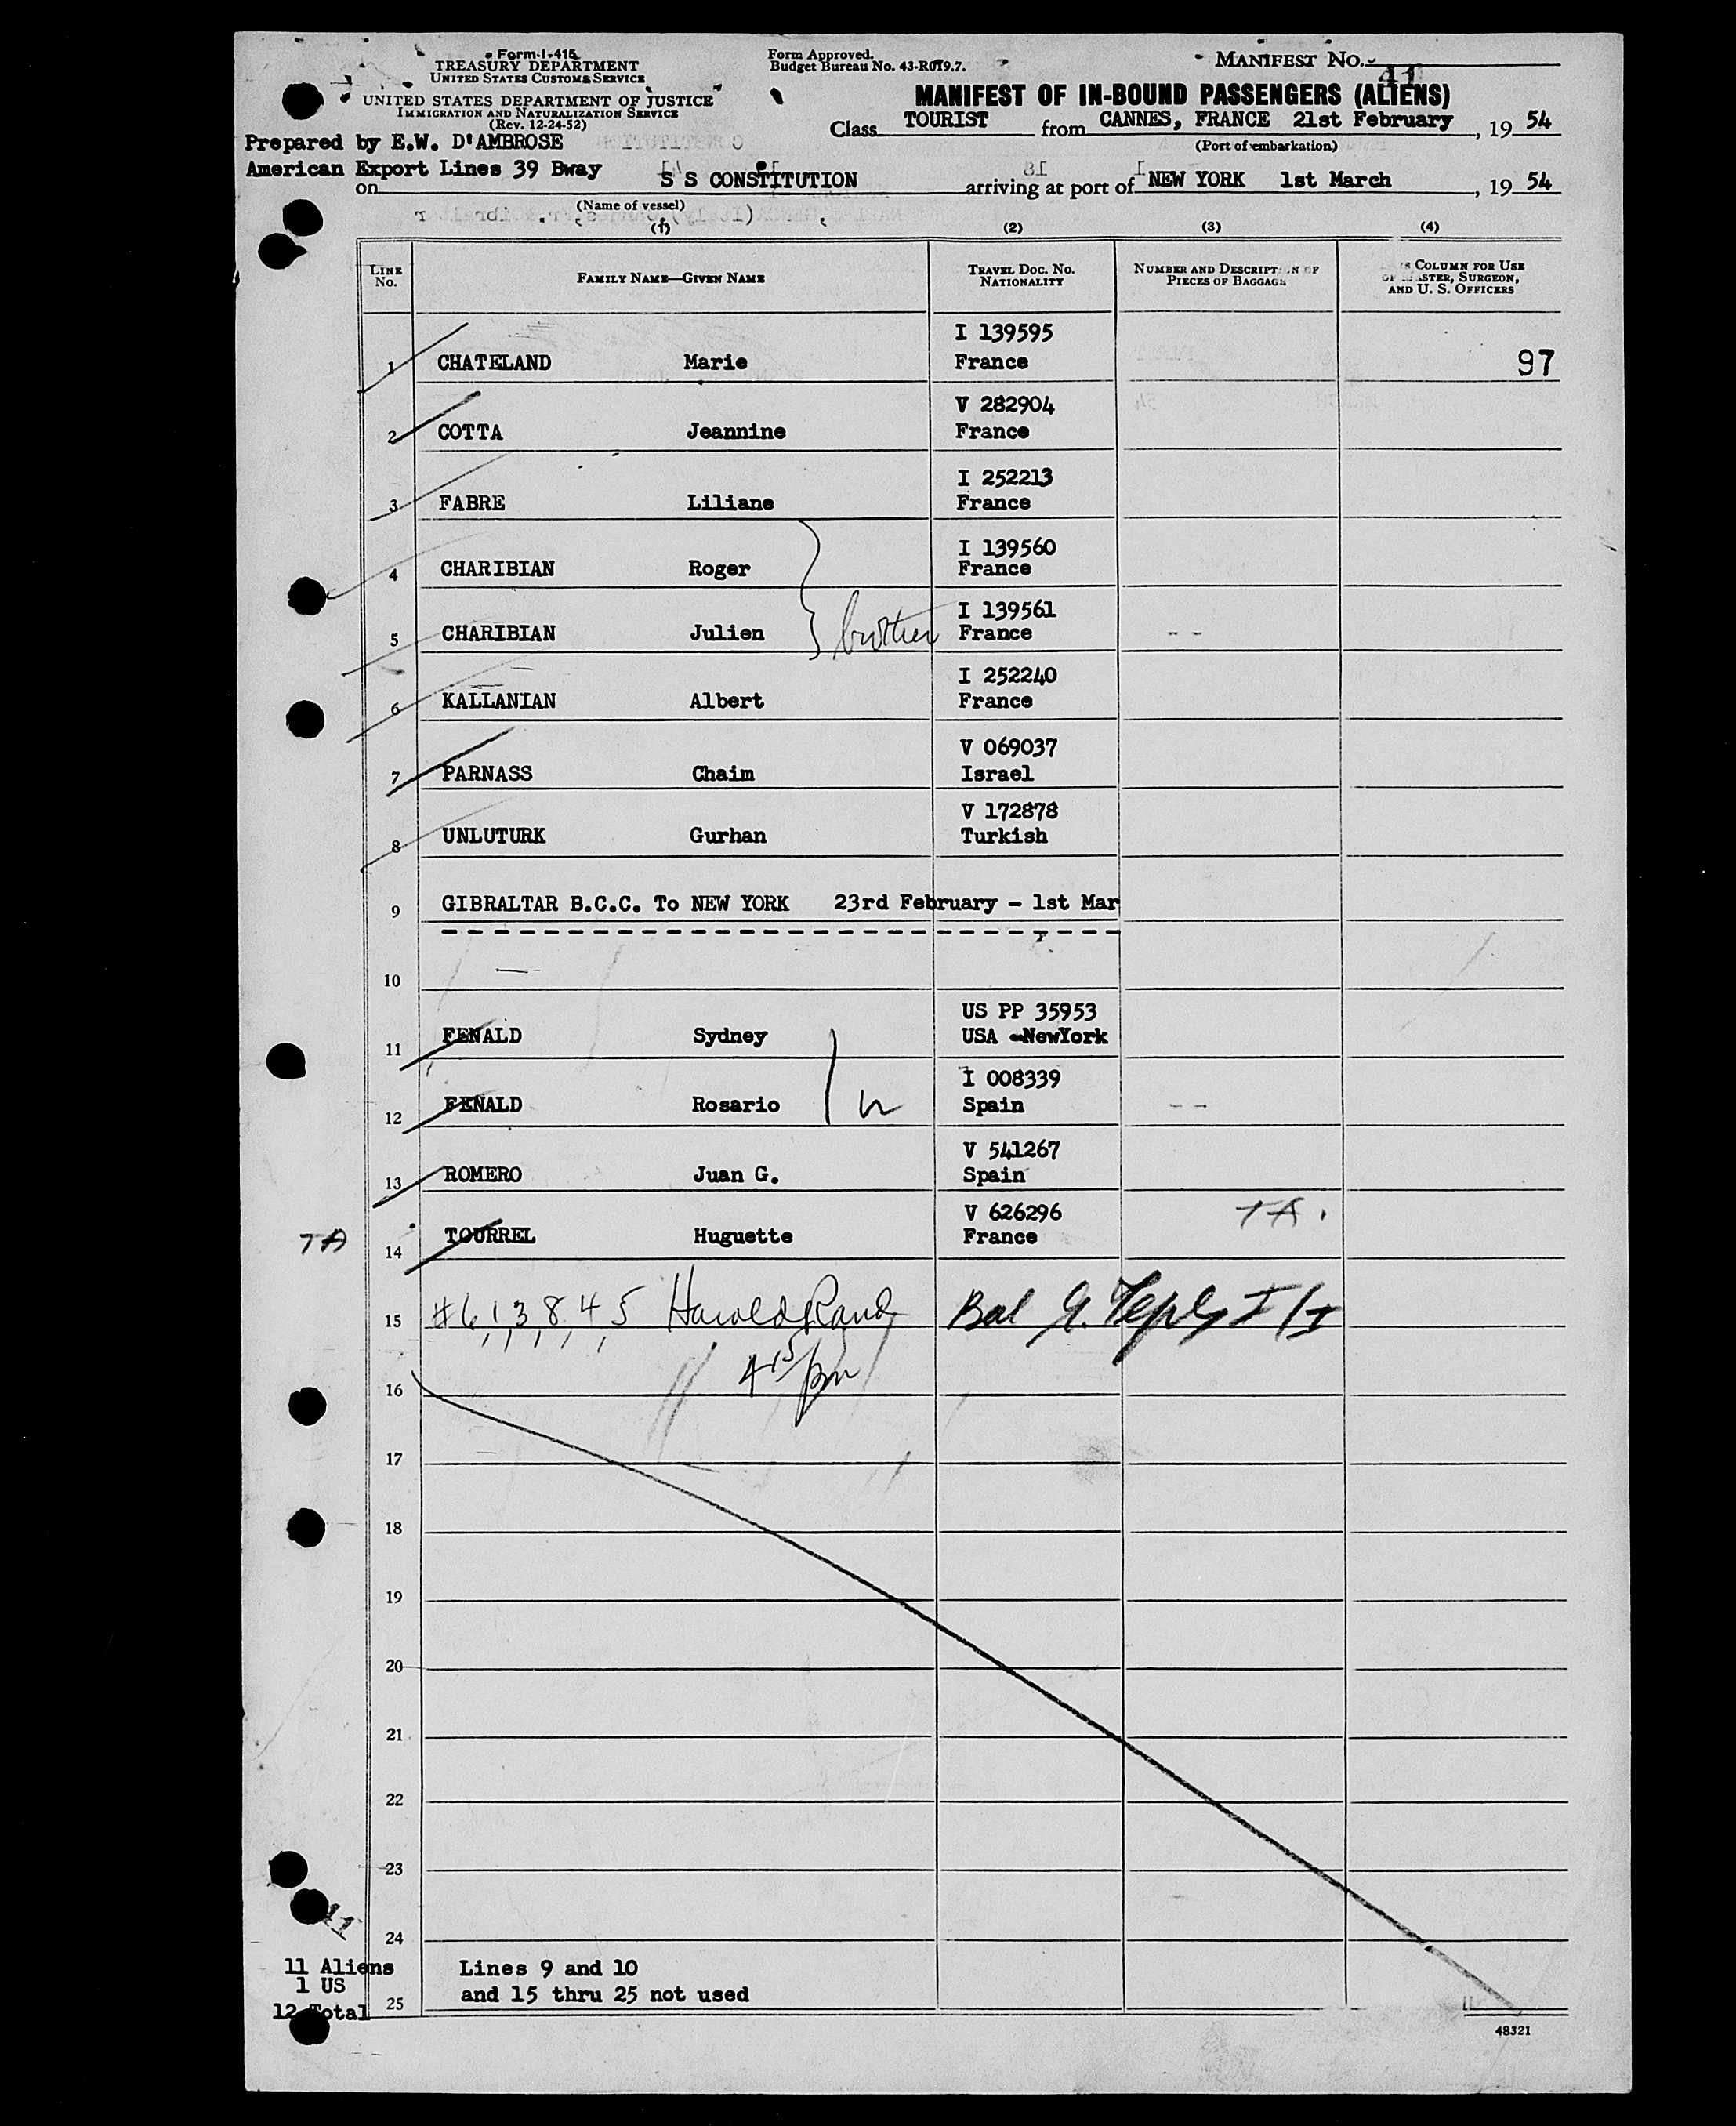 Form I-415
TREASURY DEPARTMENT
UNITED STATES CUSTOMS SERVICE
UNITED STATES DEPARTMENT OF JUSTICE
IMMIGRATION AND NATURALIZATION SERVICE
(Rev. 12-24-52)
Form Approved.
Budget Bureau No. 43-R019.7.
MANIFEST No. 41
MANIFEST OF IN-BOUND PASSENGERS (ALIENS)
Class TOURIST from CANNES, FRANCE 21st February, 19 54
(Port of embarkation)
Prepared by E.W. D'AMBROSE
American Export Lines 39 Bway
on S S CONSTITUTION arriving at port of NEW YORK 1st March, 19 54
(Name of vessel)
(1) (2) (3) (4)
LINE No. FAMILY NAME—GIVEN NAME TRAVEL DOC. NO. NATIONALITY NUMBER AND DESCRIPTION OF PIECES OF BAGGAGE COLUMN FOR USE OF MASTER, SURGEON, AND U. S. OFFICERS
I 139595
1 CHATELAND Marie France 97
V 282904
2 COTTA Jeannine France
I 252213
3 FABRE Liliane France
I 139560
4 CHARIBIAN Roger France
I 139561
5 CHARIBIAN Julien brother France - -
I 252240
6 KALLANIAN Albert France
V 069037
7 PARNASS Chaim Israel
V 172878
8 UNLUTURK Gurhan Turkish
9 GIBRALTAR B.C.C. To NEW YORK 23rd February - 1st Mar
10
US PP 35953
11 FENALD Sydney USA -NewYork
I 008339
12 FENALD Rosario Spain - -
V 541267
13 ROMERO Juan G. Spain
V 626296 TA.
TA 14 TOURREL Huguette France
15 #6, 1, 3, 8, 4, 5 Harold Rand Bal
4 15 pm
16
17
18
19
20
21
22
23
11
24
11 Aliens Lines 9 and 10
1 US and 15 thru 25 not used
12 Total 25
48321